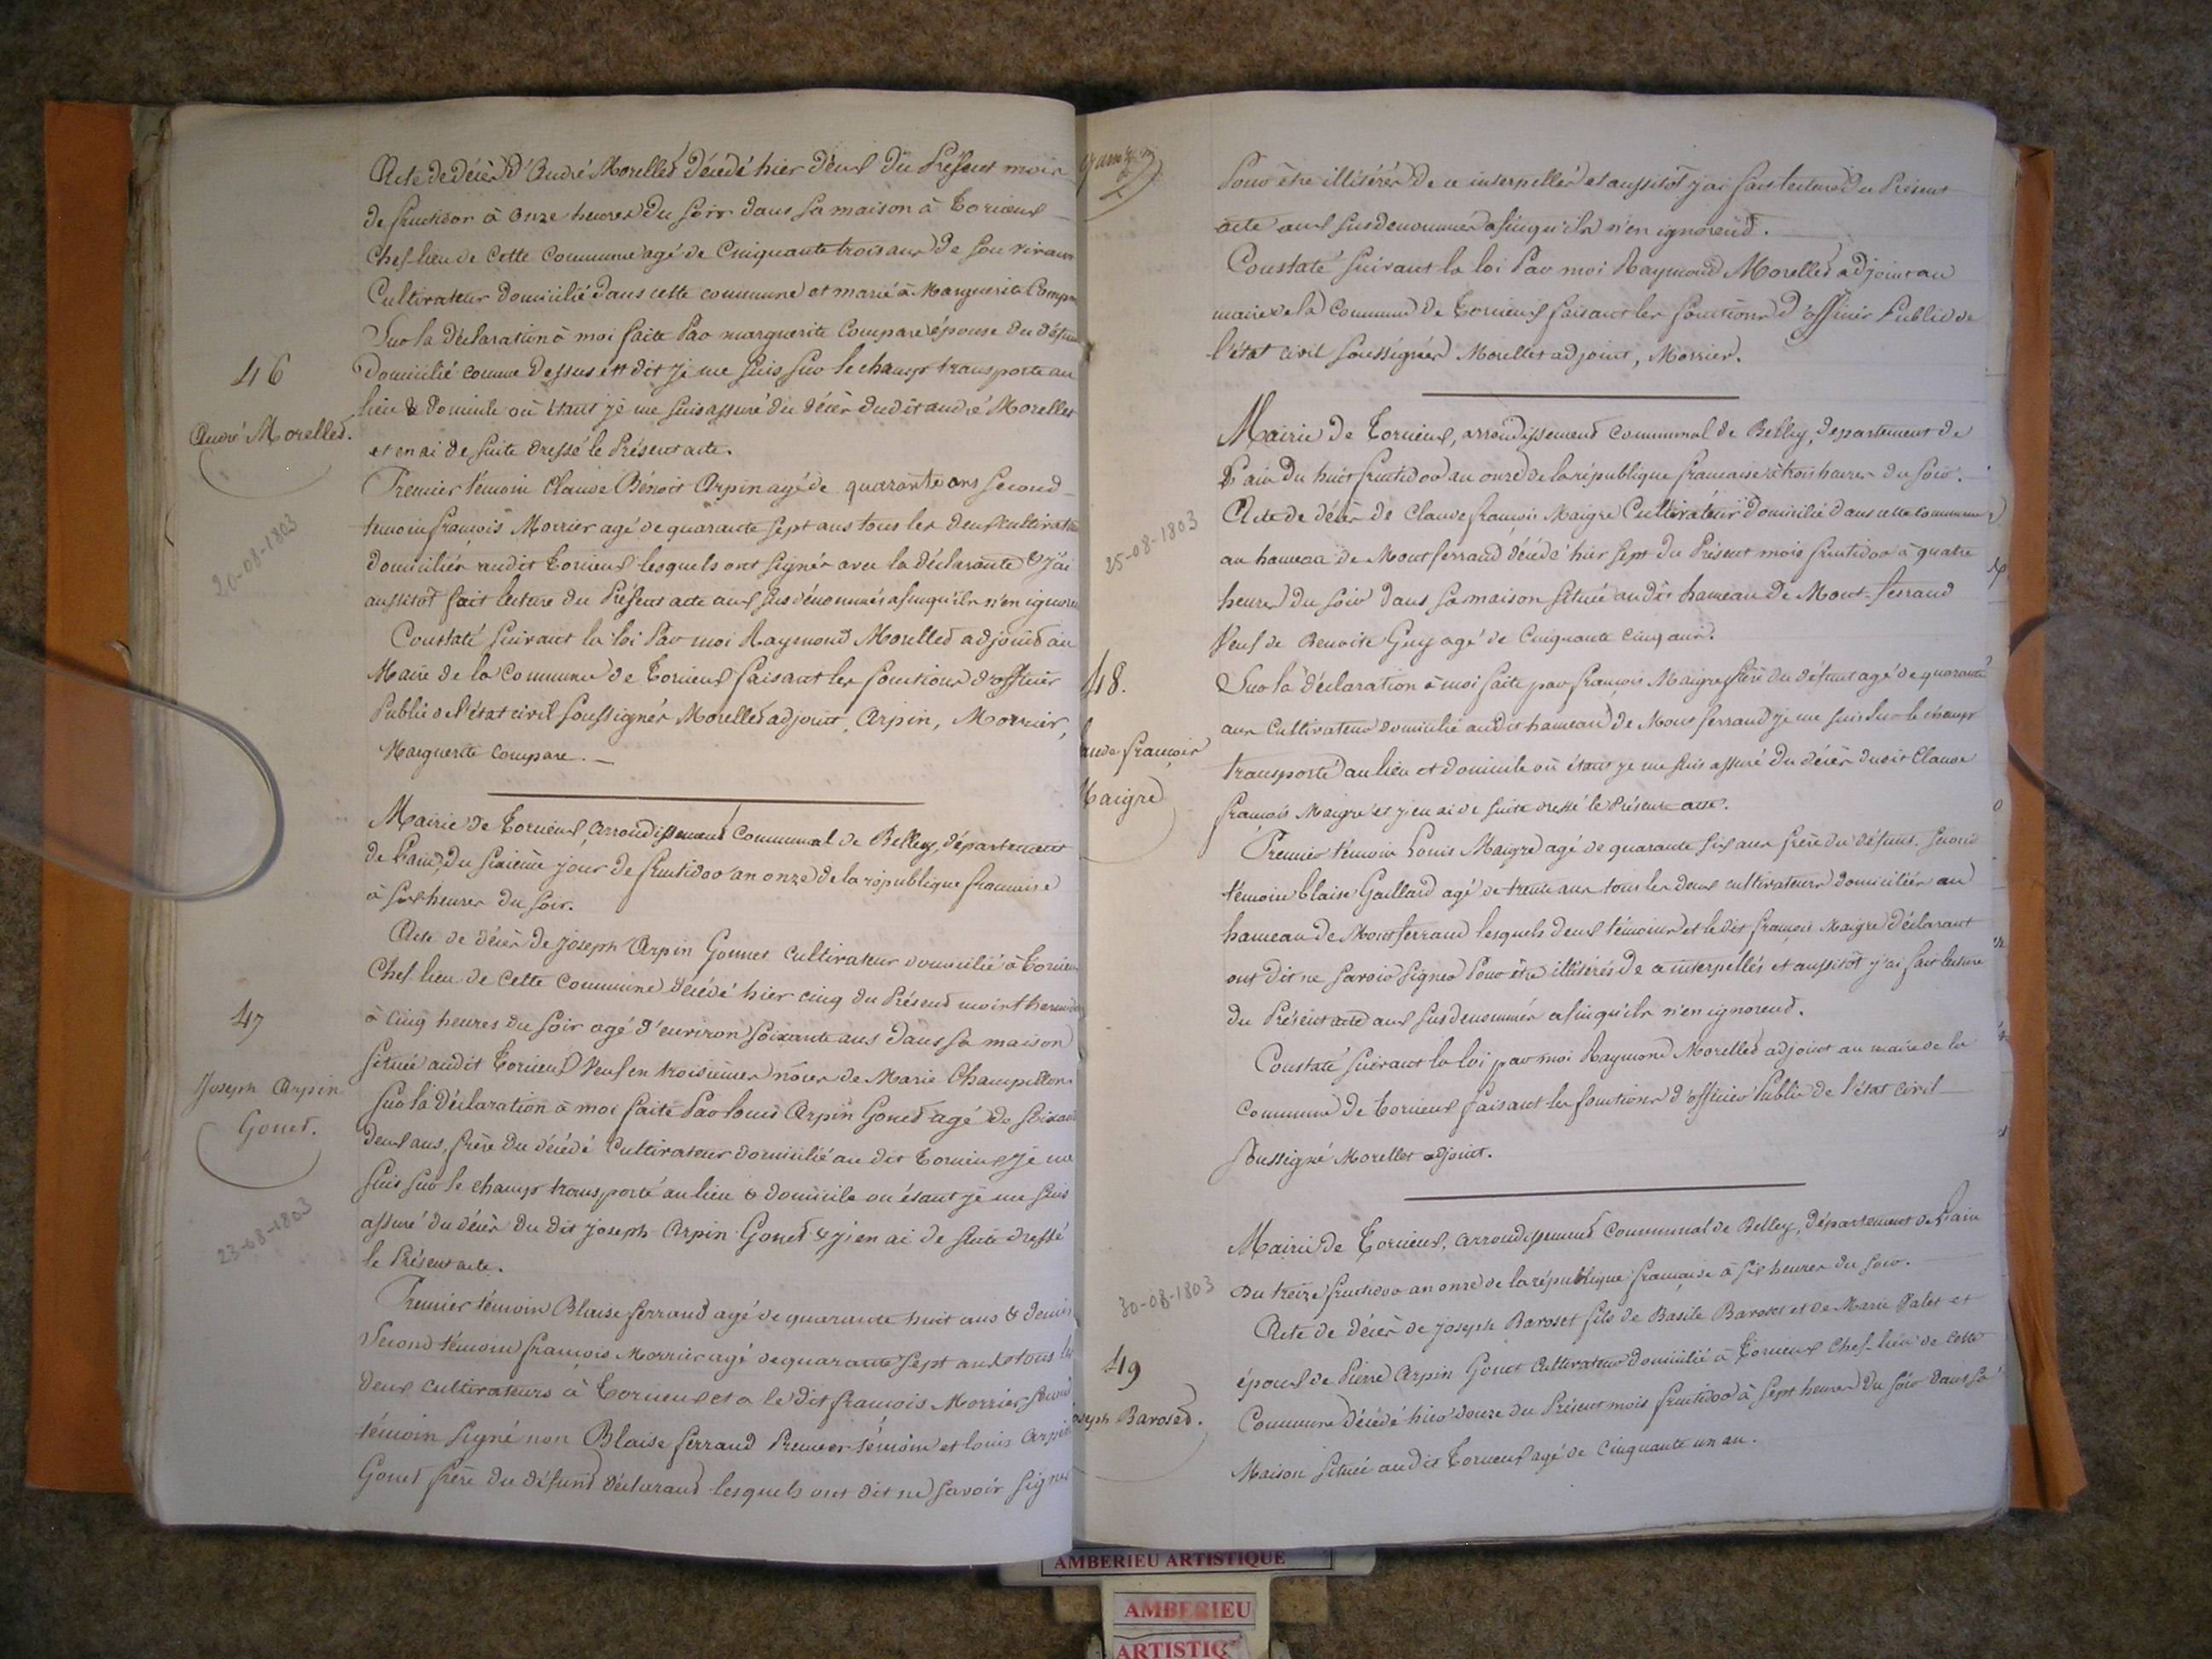 Acte de décès d'André Morellet décédé hier deux du Présent mois
de fructidor à onze heures du soir dans sa maison à Torcieux
Chef-lieu de Cette Commune agé de Cinquante trois ans de son vivant
Cultivateur domicilié dans cette commune et marié à Marguerite Compa
Sur la déclaration à moi faite Par marguerite Compare épouse du défun
46
domicilié comme dessus est dit je me suis sur le champ transporté au
lieu & domicile où étant je me suis assuré du décès dudit andré Morellet
André Morellet.
et en ai de suite dressé le Présent acte.
Premier témoin Claude Bénoit Arpin agé de quarante ans second
temoin françois Morrier agé de quarante sept ans tous les deux cultivat
20-08-1803
domiciliés audit Torcieux lesquels ont signés avec la déclarante & j'ai
aussitôt fait lecture du Présent acte aux susdénommés afinqu'ils n'en ignore
Constaté suivant la loi Par moi Raymond Morellet adjoint au
Maire de la Commune de Torcieux faisant les fonctions d'officier
Public de l'état civil soussignés Morellet adjoint, Arpin, Morrier,
Marguerite compare. —
Mairie de Torcieux, arrondissement Communal de Belley, département
de l'ain, du sixième jour de fructidor an onze de la république françaisse
à six heures du soir.
Acte de décès de joseph Arpin Gonnet cultivateur domicilié à Torcieux
Chef lieu de Cette Commune décédé hier cinq du Présent mois thermid
47
à cinq heures du soir agé d'environ soixante ans dans sa maison
située audit Torcieux Veuf en troisièmes nôces de Marie Champillon
Joseph Arpin
Gonet.
Sur la déclaration à moi faite Par louis Arpin Gonet agé de soixan
deux ans, frère du décédé Cultivateur domicilié au dit Torcieux je me
suis sur le champ transporté au lieu & domicile ou étant je me suis
23-08-1803
assuré du décès du dit joseph Arpin Gonet & j'en ai de suite dressé
le Présent acte.
Premier témoin Blaise ferrand agé de quarante huit ans & demi
Second témoin françois Morrier agé de quarante sept ans tous les
deux cultivateurs à Torcieux et a le dit françois Morrier second
témoin signé non Blaise ferrand Premier témoin et louis Arpin
Gonet frère du défunt déclarant lesquels ont dit ne savoir signer
Pour être illitérés de ce interpellés et aussitôt j'ai fait lecture du Présent
acte aux susdenommés afinqu'ils n'en ignorent.
Constaté suivant la loi Par moi Raymond Morellet adjoint au
maire de la Commune de Torcieux faisant les fonctions d'officier Public de
l'état civil soussignés Morellet adjoint, Morrier.
Mairie de Torcieux, arrondissement Communal de Belley, departement de
L'ain du huit fructidor an onze de la république française à trois heures du soir.
25-08-1803
Acte de décès de Claude françois Maigre Cultivateur domicilié dans cette commune
au hameau de Montferrand décédé hier sept du Présent mois fructidor à quatre
heures du soir dans sa maison située audit hameau de Mont-ferrand
Veuf de Benoite Guy agé de Cinquante cinq ans.
48.
Sur la déclaration à moi faite par françois Maigre frère du défunt agé de quarante
ans Cultivateur domicilié audit hameau de Mont ferrand je me suis sur le champ
aude françois
Maigre
transporté au lieu et domicile où étant je me suis assuré du décès dudit Claude
françois Maigre et j'en ai de suite dressé le Présent acte.
Premier témoin Louis Maigre agé de quarante six ans frère du défunt, second
témoin Claise Gaillard agé de trente ans tous les deux cultivateurs domiciliés au
hameau de Montferrand lesquels deux témoins et le dit françois Maigre déclarant
ont dit ne savoir signer Pour être illitérés de ce interpellés et aussitôt j'ai fait lecture
du Présent acte aux susdenommés afinqu'ils n'en ignorent.
Constaté suivant la loi par moi Raymond Morellet adjoint au maire de la
Commune de Torcieux faisant les fonctions d'officier Public de l'état civil
Soussigné Morellet adjoint.
Mairie de Torcieux, arrondissement Communal de Belley, département de L'ain
30-08-1803
Du treize fructidor an onze de la république française à six heures du soir.
Acte de décès de joseph Baroset fils de Basile Baroset et de Marie Palet et
49
époux de Pierre Arpin Gonet Cultivateur domicilié à Torcieux Chef-lieu de cette
oseph Baroset.
Commune décédé hier douze du Présent mois fructidor à sept heures du soir dans sa
Maison située audit Torcieux agé de Cinquante un an.
AMBERIEU ARTISTIQUE
AMBERIEU
ARTISTIQ